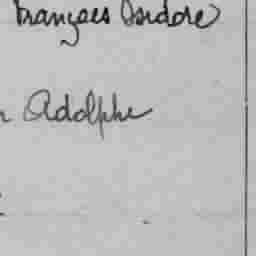 François Isidore
Adolphe